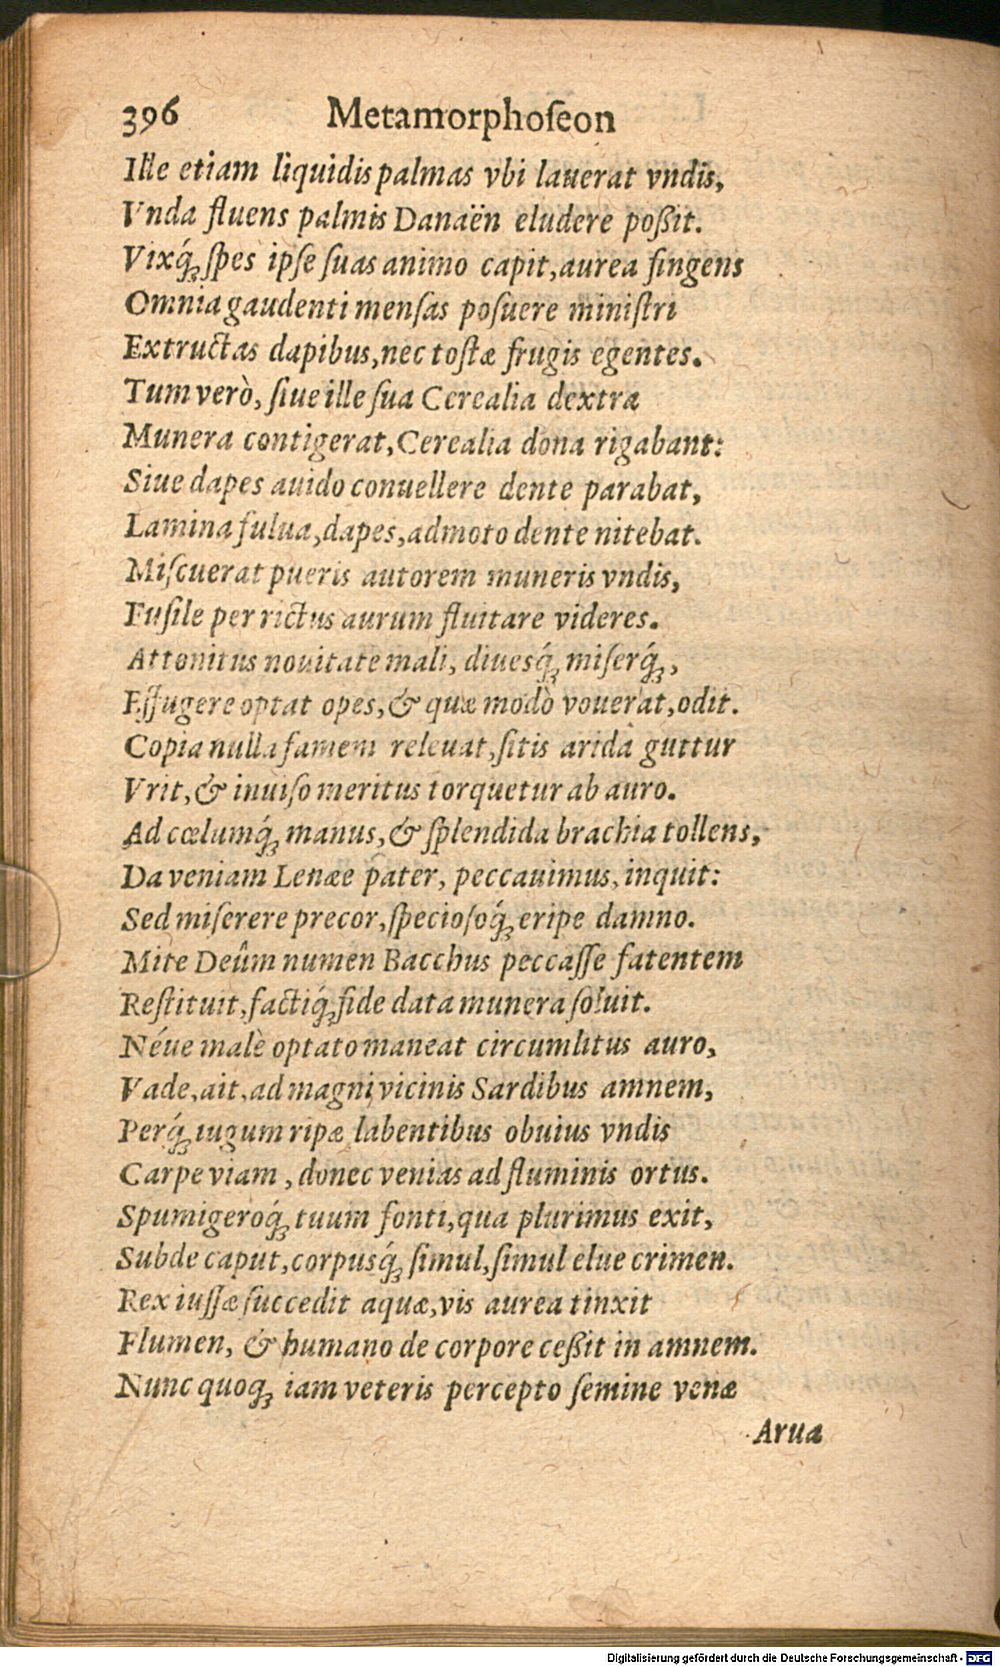 396 Metamorphoſeon
Ille etiam liquidis palmas vbi lauerat vndis,
Vnda fluens palmis Danaën eludere poßit.
Vixq́ꝫ ſpes ipſe ſuas animo capit, aurea fingens
Omnia gaudenti menſas poſuere miniſtri
Extructas dapibus, nec toſtæ frugis egentes.
Tum verò, ſiue ille ſua Cerealia dextra
Munera contigerat, Cerealia dona rigabant:
Siue dapes auido conuellere dente parabat,
Lamina fulua, dapes, admoto dente nitebat.
Miſcuerat pueris autorem muneris vndis,
Fuſile per rictus aurum fluitare videres.
Attonitus nouitate mali, diuesq́ꝫ miſerq́ꝫ,
Effugere optat opes, & quæ modò vouerat, odit.
Copia nulla famem releuat, ſitis arida guttur
Vrit, & inuiſo meritus torquetur ab auro.
Ad cœlumq́ꝫ manus, & ſplendida brachia tollens,
Da veniam Lenæe pater, peccauimus, inquit:
Sed miſerere precor, ſpecioſoq́ꝫ eripe damno.
Mite Deûm numen Bacchus peccaſſe fatentem
Reſtituit, factiq́ꝫ fide data munera ſoluit.
Néue malè optato maneat circumlitus auro,
Vade, ait, ad magni vicinis Sardibus amnem,
Perq́ꝫ iugum ripæ labentibus obuius vndis
Carpe viam, donec venias ad fluminis ortus.
Spumigeroq́ꝫ tuum fonti, qua plurimus exit,
Subde caput, corpusq́ꝫ ſimul, ſimul elue crimen.
Rex iuſſæ ſuccedit aquæ, vis aurea tinxit
Flumen, & humano de corpore ceßit in amnem.
Nunc quoqꝫ iam veteris percepto ſemine venæ
Arua
Digitalisierung gefördert durch die Deutsche Forschungsgemeinschaft - DFG